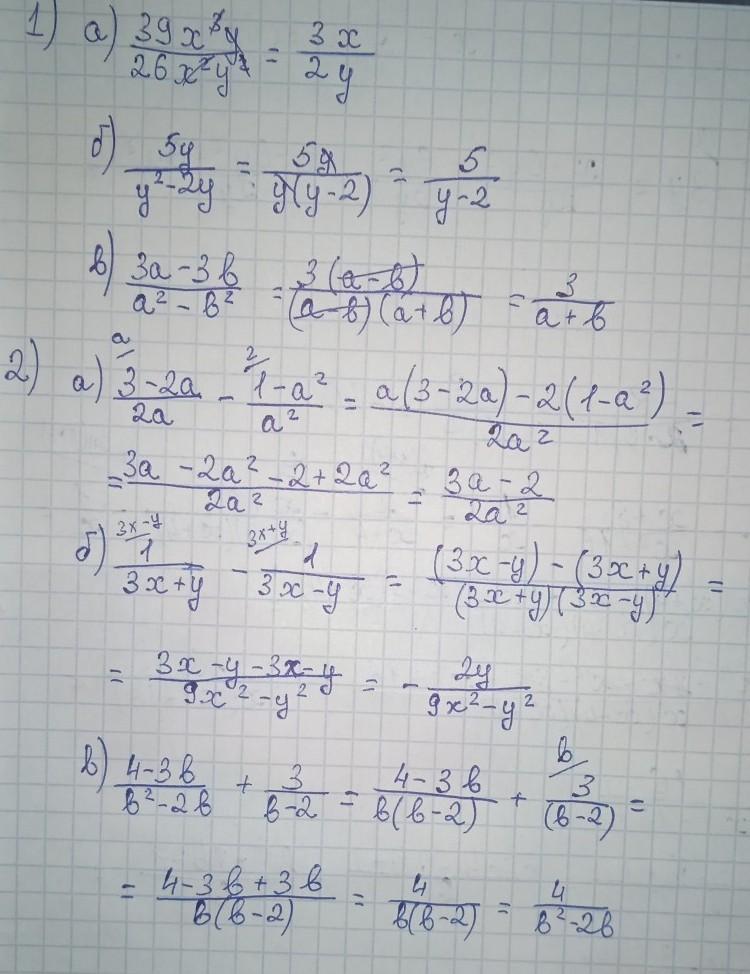 1) а) 39x³y / 26x²y² = 3x / 2y
б) 5y / y²-2y = 5y / y(y-2) = 5 / y-2
в) 3a-3b / a²-b² = 3(a-b) / (a-b)(a+b) = 3 / a+b
2) а) a/ 3-2a / 2a - 2/ 1-a² / a² = a(3-2a)-2(1-a²) / 2a² =
= 3a-2a²-2+2a² / 2a² = 3a-2 / 2a²
б) 3x-y/ 1 / 3x+y - 3x+y/ 1 / 3x-y = (3x-y)-(3x+y) / (3x+y)(3x-y) =
= 3x-y-3x-y / 9x²-y² = - 2y / 9x²-y²
в) 4-3b / b²-2b + 3 / b-2 = 4-3b / b(b-2) + b/ 3 / (b-2) =
= 4-3b+3b / b(b-2) = 4 / b(b-2) = 4 / b²-2b